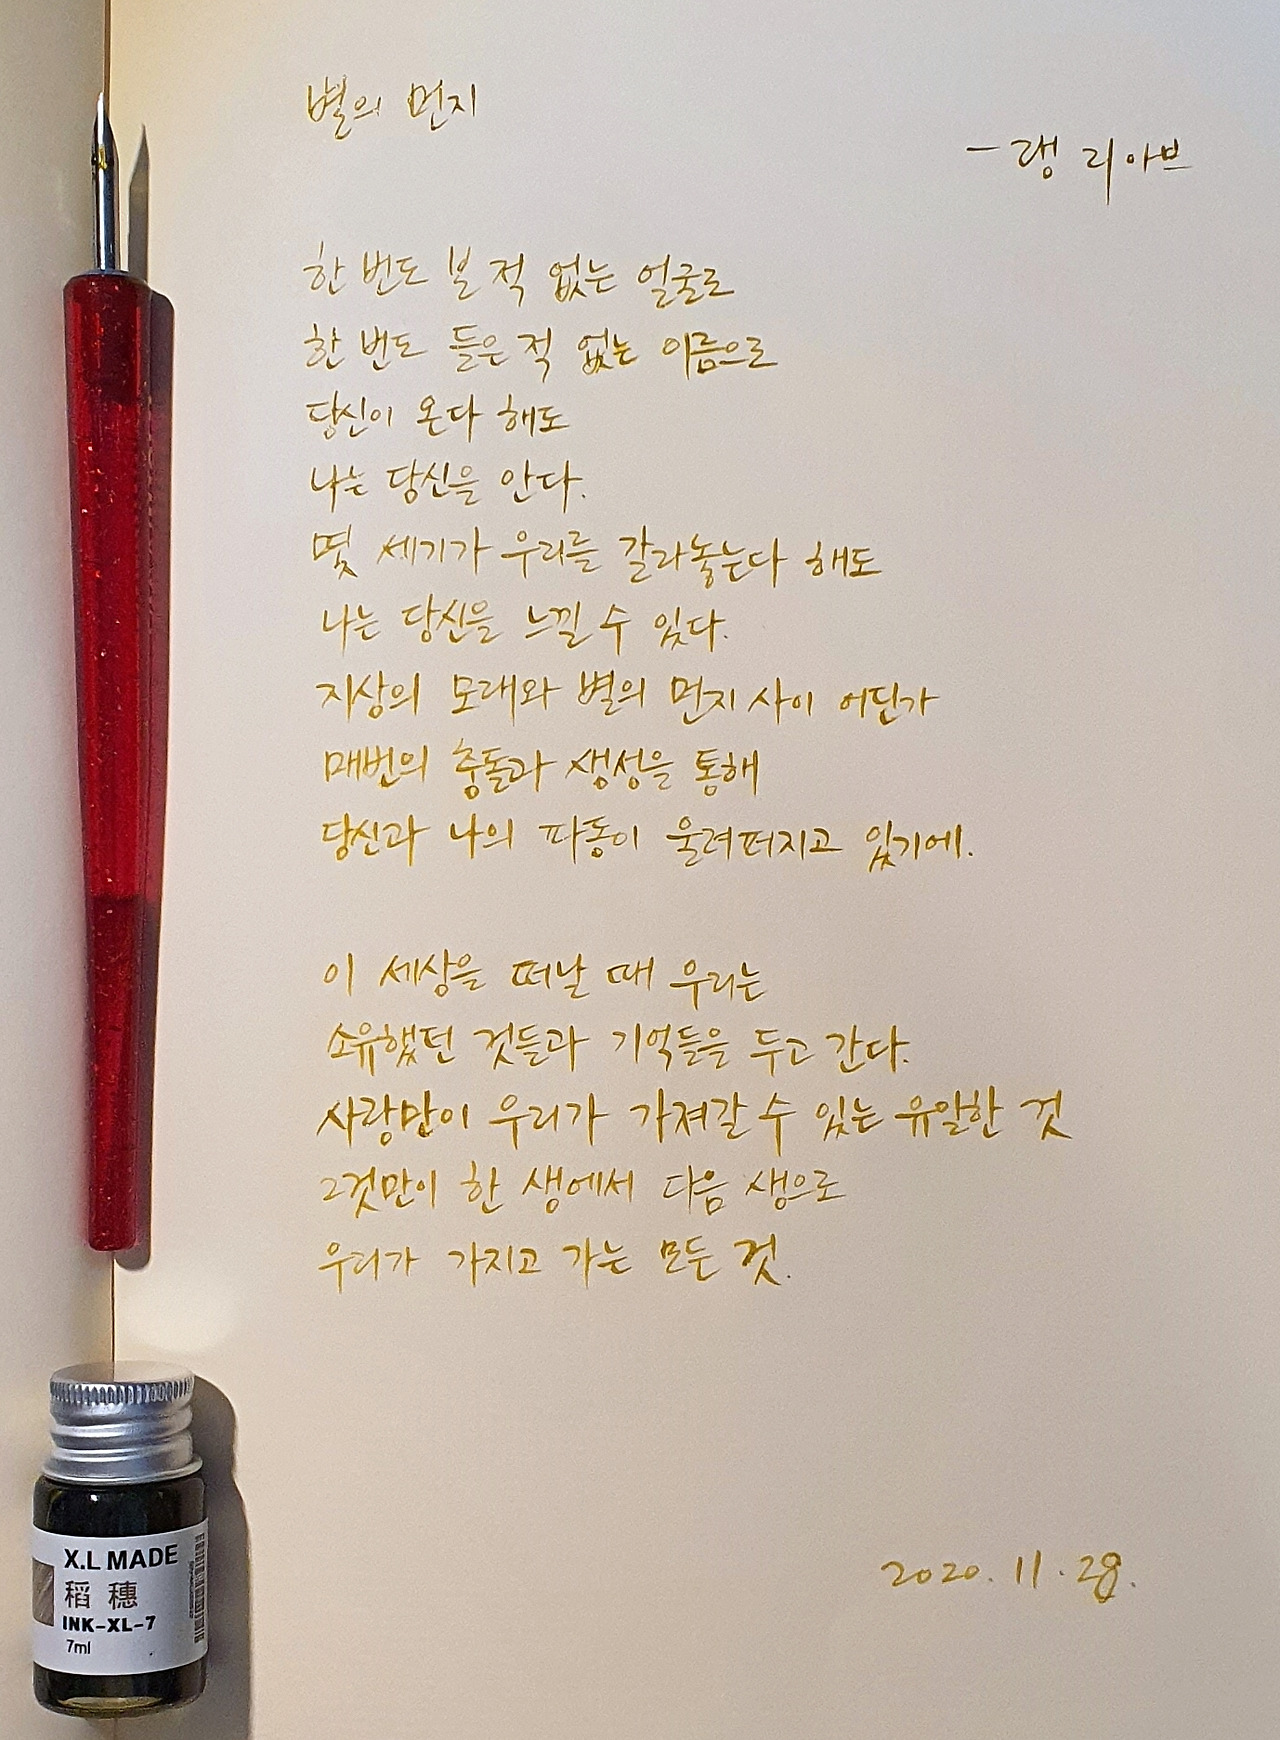 별의 먼지
- 랭 리아브
한 번도 본 적 없는 얼굴로
한 번도 들은 적 없는 이름으로
당신이 온다 해도
나는 당신을 안다.
몇 세기가 우리를 갈라놓는다 해도
나는 당신을 느낄 수 있다.
지상의 모래와 별의 먼지 사이 어딘가
매번의 충돌과 생성을 통해
당신과 나의 파동이 울려퍼지고 있기에.
이 세상을 떠날 때 우리는
소유했던 것들과 기억들을 두고 간다.
사랑만이 우리가 가져갈 수 있는 유일한 것
그것만이 한 생에서 다음 생으로
우리가 가지고 가는 모든 것.
2020. 11. 28.
X.L MADE
稻穗
INK-XL-7
7ml